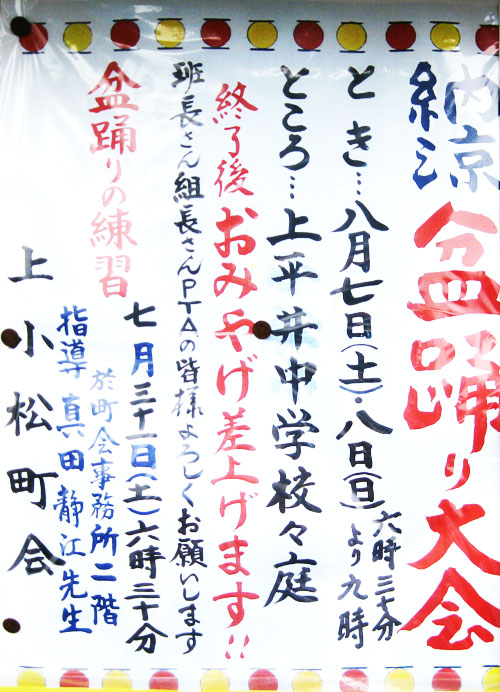 納涼盆踊り大会
とき…八月七日(土)・八日(日)六時三十分より九時
ところ…上平井中学校々庭
終了後おみやげ差上げます!!
班長さん組長さんPTAの皆様よろしくお願いします
盆踊りの練習
七月三十一日(土)六時三十分
於町会事務所二階
指導 真田静江先生
上小松町会